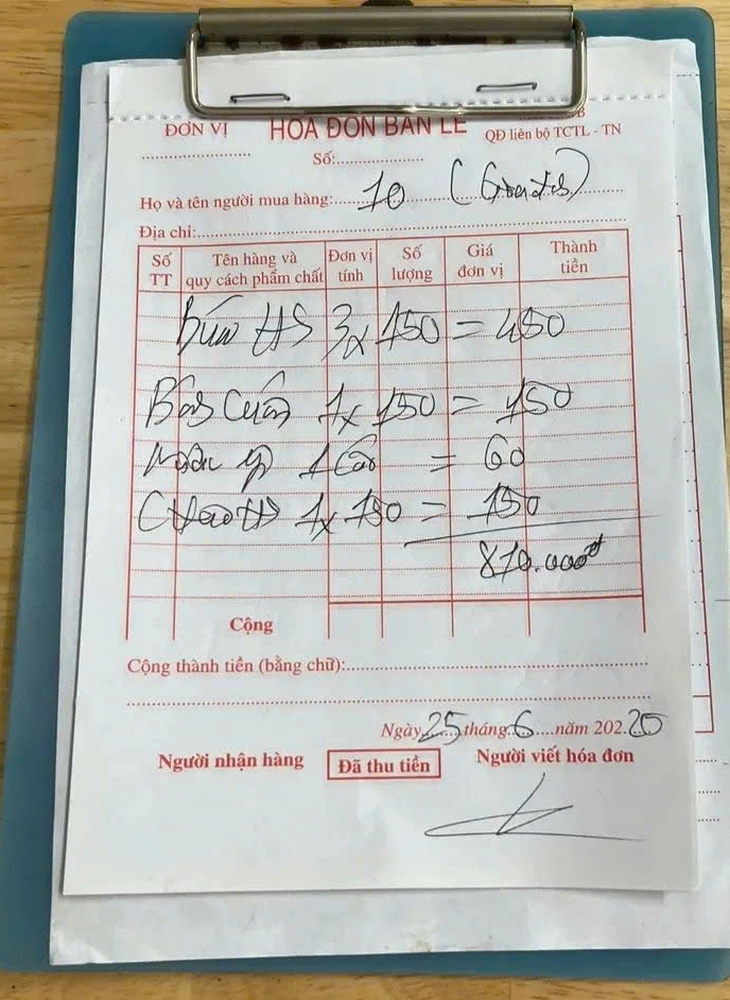 ĐƠN VỊ HÓA ĐƠN BÁN LẺ
QĐ liên bộ TCTL - TN
Số:
Họ và tên người mua hàng: 10
Địa chỉ:
Số TT Tên hàng và quy cách phẩm chất Đơn vị tính Số lượng Giá đơn vị Thành tiền
Bún HS 3x150 = 450
Bánh Cuốn 1x150 = 150
= 60
Cháo HS 1x150 = 150
810.000đ
Cộng
Cộng thành tiền (bằng chữ):
Ngày 25 tháng 6 năm 202.20
Người nhận hàng Đã thu tiền Người viết hóa đơn